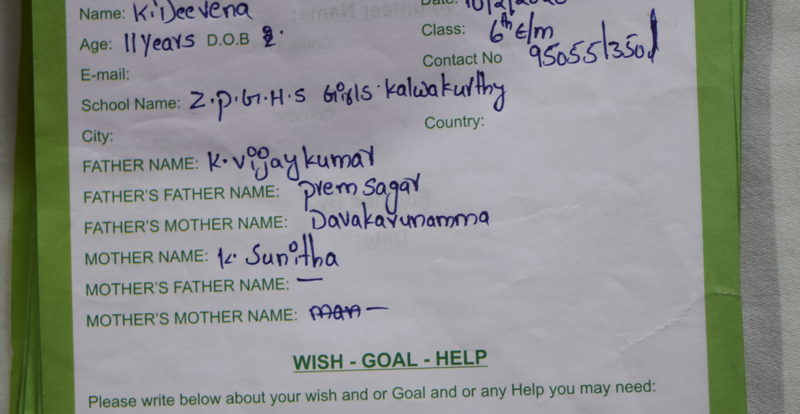 Name: K. Jeevena
Age: 11 years D.O.B
Class: 6th E/m
E-mail:
Contact No 9505513501
School Name: Z.P.G.H.S Girls. Kalwakurthy
City:
Country:
FATHER NAME: K. Vijay kumar
FATHER'S FATHER NAME: prem sagar
FATHER'S MOTHER NAME: Davakarunamma
MOTHER NAME: K. Sunitha
MOTHER'S FATHER NAME: —
MOTHER'S MOTHER NAME: —
WISH - GOAL - HELP
Please write below about your wish and or Goal and or any Help you may need: